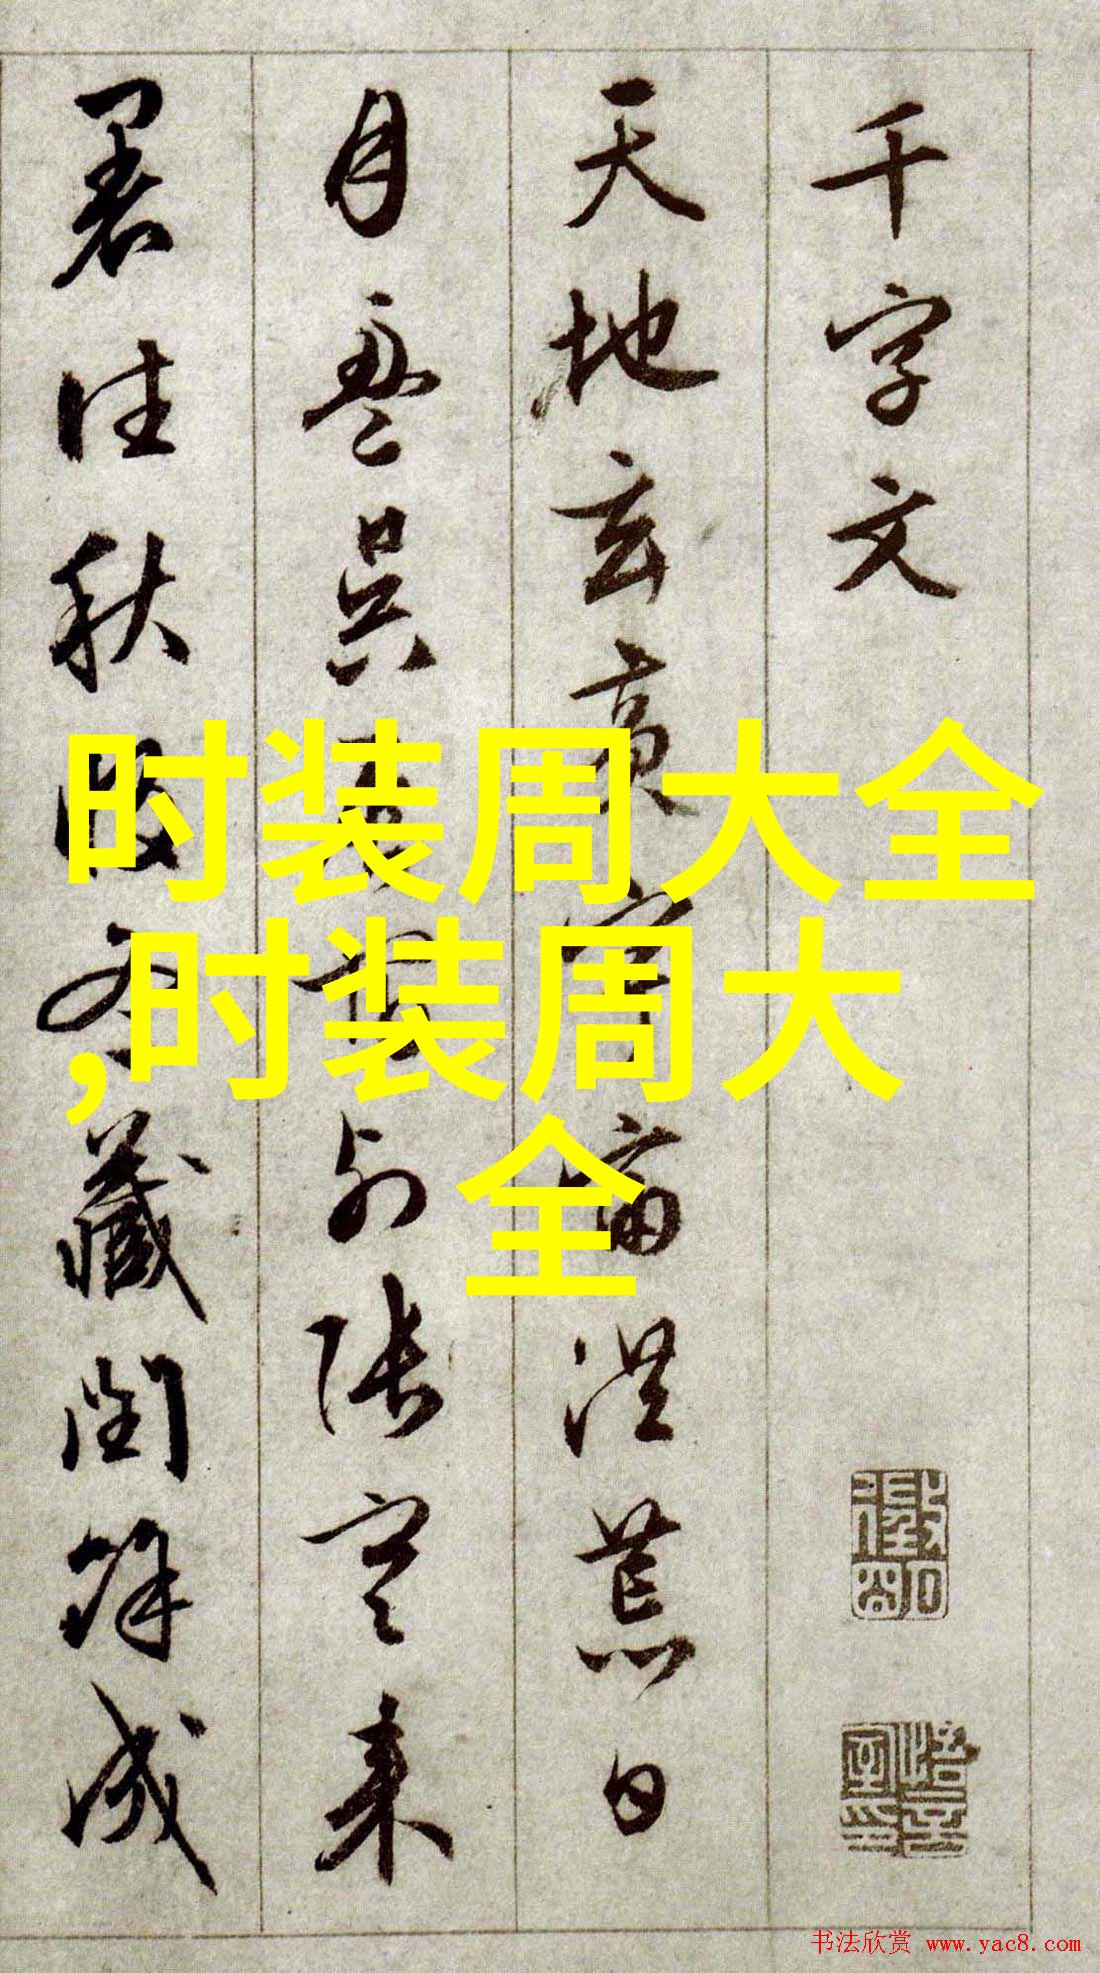 千字文
天地玄黄宇宙洪荒日
月盈昃辰宿列张寒来
暑往秋收冬藏闰馀成
时装周大全
,时装周大
全
书法欣赏 www.yac8.com